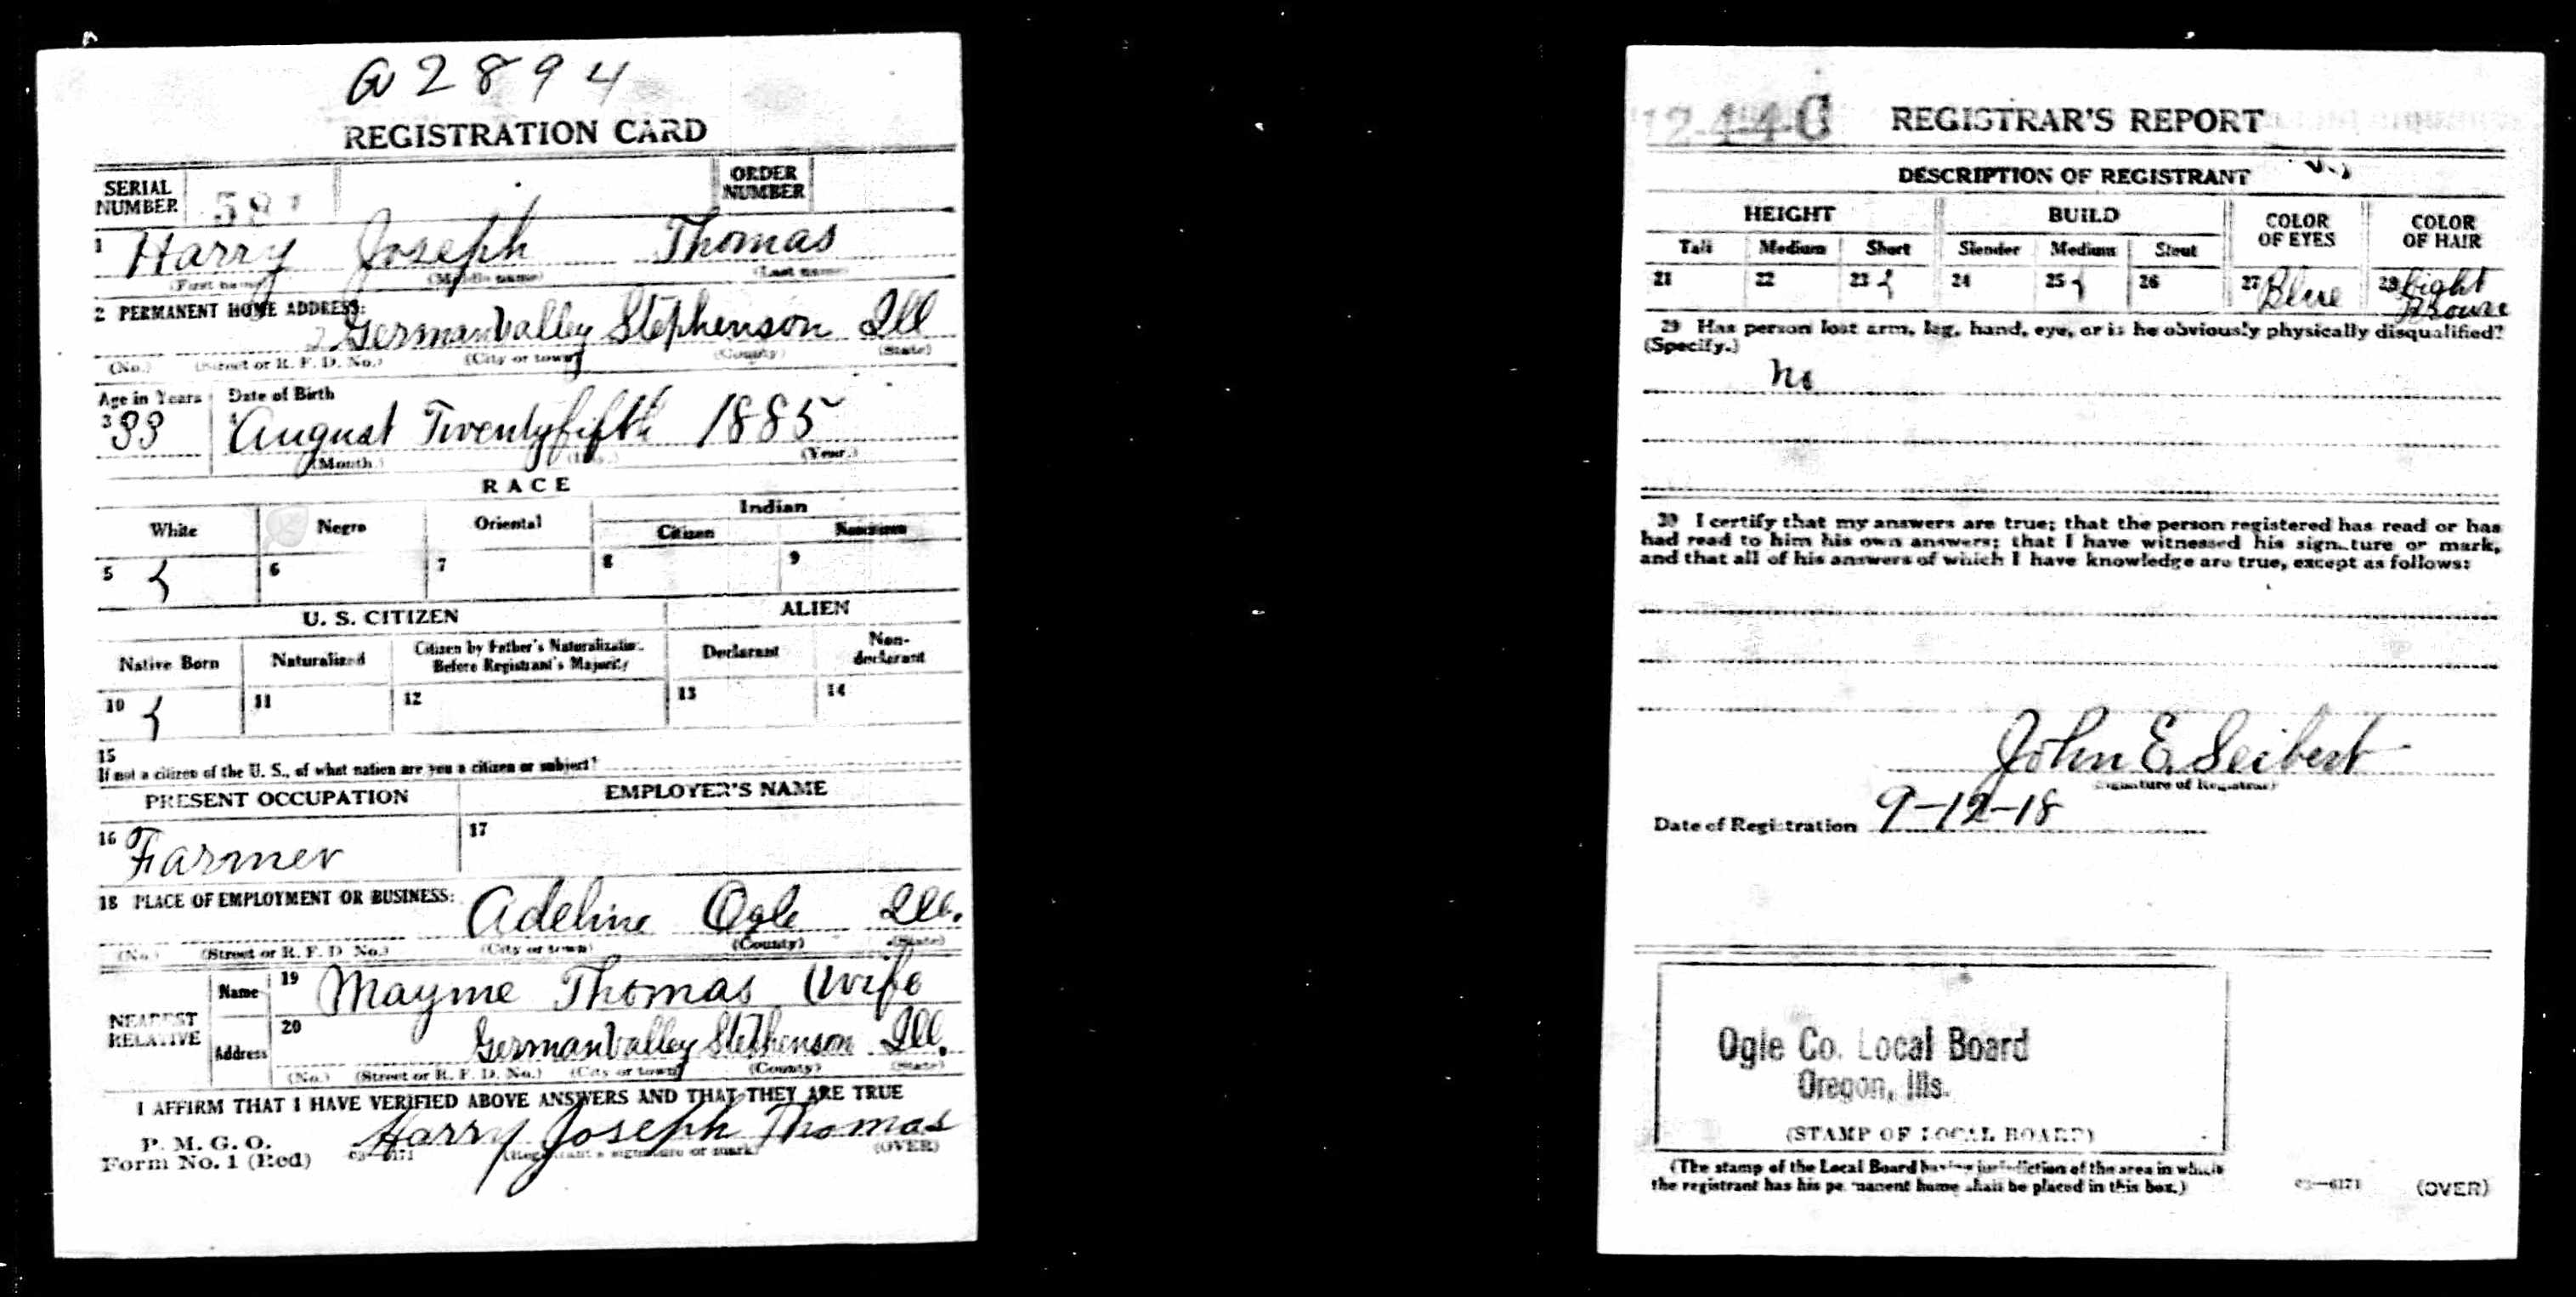 A2894
REGISTRATION CARD
SERIAL NUMBER 58
ORDER NUMBER
1 Harry Joseph Thomas
(First name) (Middle name) (Last name)
2 PERMANENT HOME ADDRESS:
2 GermanValley Stephenson Ill
(No.) (Street or R. F. D. No.) (City or town) (County) (State)
Age in Years Date of Birth
3 33 4 August Twentyfifth 1885
(Month.) (Day.) (Year.)
RACE
White Negro Oriental Indian
Citizen Noncitizen
5 6 7 8 9
U. S. CITIZEN ALIEN
Native Born Naturalized Citizen by Father's Naturalization Before Registrant's Majority Declarant Non-declarant
10 11 12 13 14
15
If not a citizen of the U. S., of what nation are you a citizen or subject?
PRESENT OCCUPATION EMPLOYER'S NAME
16 Farmer 17
18 PLACE OF EMPLOYMENT OR BUSINESS:
Adeline Ogle Ill.
(No.) (Street or R. F. D. No.) (City or town) (County) (State)
NEAREST RELATIVE
Name 19 Mayme Thomas Wife
Address 20 GermanValley Stephenson Ill.
(No.) (Street or R. F. D. No.) (City or town) (County) (State)
I AFFIRM THAT I HAVE VERIFIED ABOVE ANSWERS AND THAT THEY ARE TRUE
P. M. G. O.
Form No. 1 (Red) 03—6171 Harry Joseph Thomas
(Registrant's signature or mark) (OVER)
12-4-4-C REGISTRAR'S REPORT
DESCRIPTION OF REGISTRANT
HEIGHT BUILD COLOR OF EYES COLOR OF HAIR
Tall Medium Short Slender Medium Stout
21 22 23 24 25 26 27 Blue 28 Light Brown
29 Has person lost arm, leg, hand, eye, or is he obviously physically disqualified?
(Specify.)
No
30 I certify that my answers are true; that the person registered has read or has
had read to him his own answers; that I have witnessed his signature or mark,
and that all of his answers of which I have knowledge are true, except as follows:
John E. Seibert
(Signature of Registrar)
Date of Registration 9-12-18
Ogle Co. Local Board
Oregon, Ills.
(STAMP OF LOCAL BOARD)
(The stamp of the Local Board having jurisdiction of the area in which
the registrant has his permanent home shall be placed in this box.)
03—6171 (OVER)